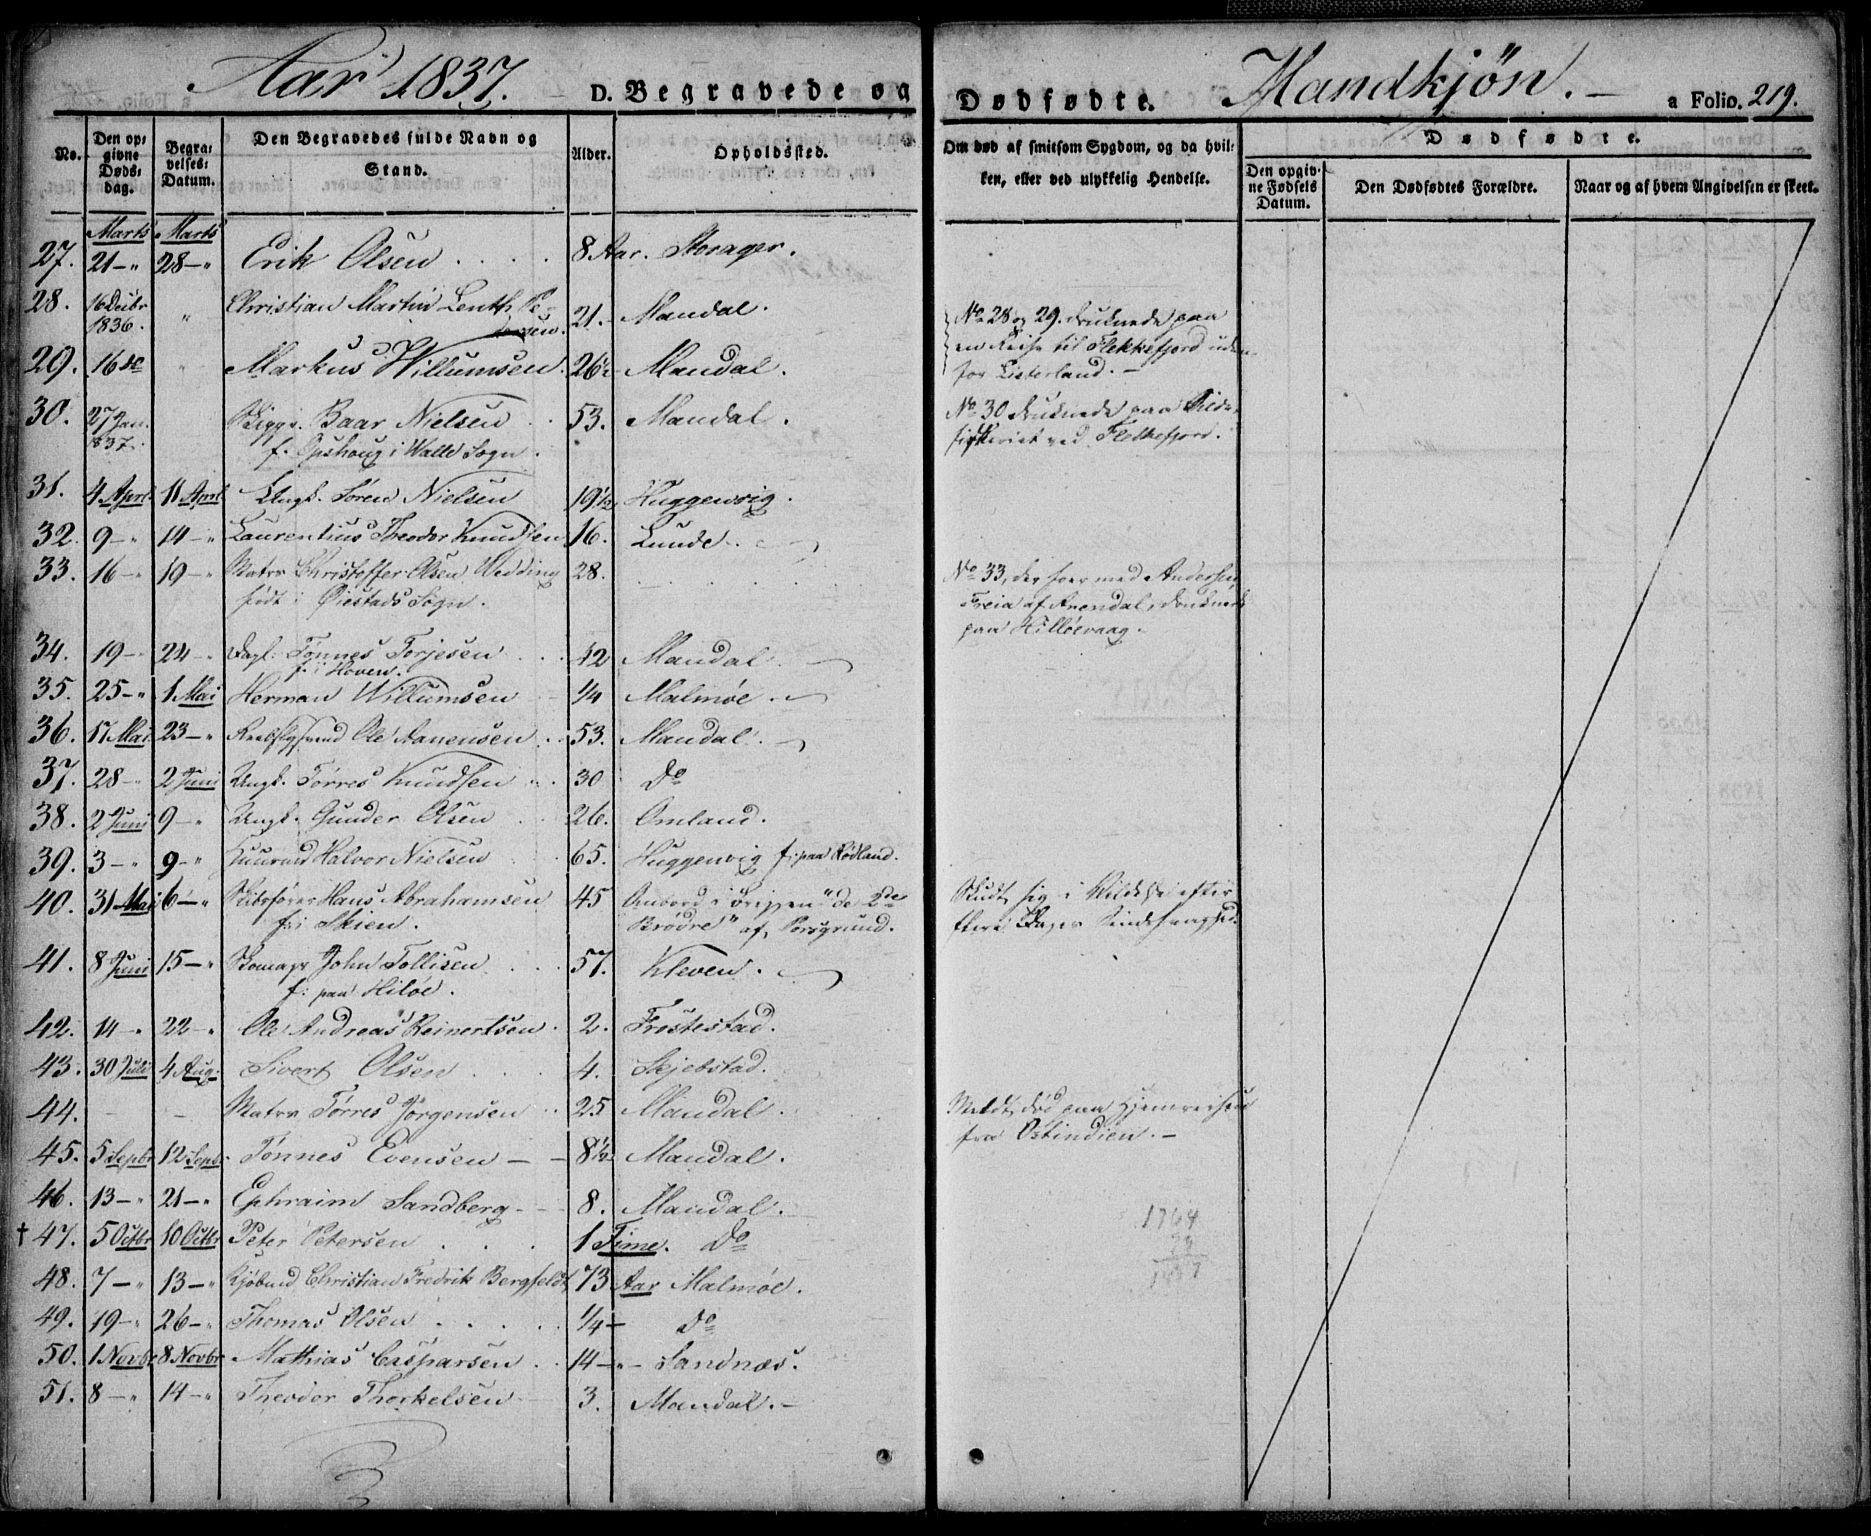 Aar 1837. D. Begravede og Dødfødte. Mandkjøn. a Folio. 219.
No. Den opgivne Døds-dag. Begravelses-Datum. Den Begravedes fulde Navn og Stand. Alder. Opholdssted. Om død af smitsom Sygdom, og da hvilken, eller ved ulykkelig Hendelse. Dødfødte.
Den opgivne Fødsels Datum. Den Dødfødtes Forældre. Naar og af hvem Angivelsen er skeet.
Marts Marts
27. 21 - " 28 - " Erik Olsen 8 Aar. Storager.
28. 16 Decbr 1836. " Christian Martin Lenth Petersen. 21. - Mandal.
No 28 og 29. druknede paa
en Reise til Flekkefjord uden
for Listerland. -
29. 16 do " Markus Willumsen. 26½ Mandal.
30. 27 Jan. 1837. Baar Nielsen 53. Mandal.
f. Opshoug i Halle Sogn.
No 30 druknede paa Silde-
fiskeriet ved Flekkefjord.
31. 4 April 11 April Ungk. Søren Nielsen 19½ Huggenvig.
32. 9 - " 14 - " Laurentius Theodor Knudsen 16. Lunde.
33. 16 - " 19 - " Matrs Christoffer Olsen Wedding 28.
født i Øiestads Sogn.
No 33, der foer med
Freia af Arendal, druknede
paa Hilløevaag.
34. 19 - " 24 - " Dagl. Tønnes Torjesen 42 Mandal.
f. i Hoven.
35. 25 - " 1 Mai Herman Willumsen 1/4 Malmøe.
36. 17 Mai 23 - " Ole Aanensen 53. Mandal.
37. 28 - 2 Juni Ungk. Tørres Knudsen 30 Do
38. 2 Juni 9 - " Ungk. Gunder Olsen 26. Omland.
39. 3 - " 9 - " Huusmd Halvor Nielsen 65. Huggenvig f: paa Rødland.
40. 31 Mai 6 - " Skibsfører Hans Abrahamsen 45 Ombord i Briggen "de 2de
f: i Skien. Brødre" af Porsgrund.
Skudt sig i Vildelse efter
flere Dages Sindssvaghed.
41. 8 Juni 15 - " Skomagr John Tollisen 57. Kleven.
f: paa Hiløe.
42. 14 - " 22 - " Ole Andreas Reinertsen 2. Frøstestad.
43. 30 Juli 4 Aug. Sivert Olsen 4. Skjebstad.
44. - - Matrs Tørres Jørgensen 25 Mandal.
Meldt død paa Hjemreisen
fra Ostindien. -
45. 5 Sepbr 12 Sepbr. Tønnes Evensen - - 8½ Mandal.
46. 13 - " 21 - " Ephraim Sandberg - 8. Mandal.
† 47. 5 Octbr 10 Octbr Peter Petersen 1 Time. Do
1764
48. 7 - " 13 - " Kjøbmd Christian Fredrik Bergfeldt 73 Aar Malmøe.
49. 19 - " 26 - " Thomas Olsen 1/4 - Do
50. 1 Novbr 8 Novbr Mathias Casparsen 14 - " - Sandnæs.
51. 8 - " 14 - " Theoder Thorkelsen 3. Mandal. -